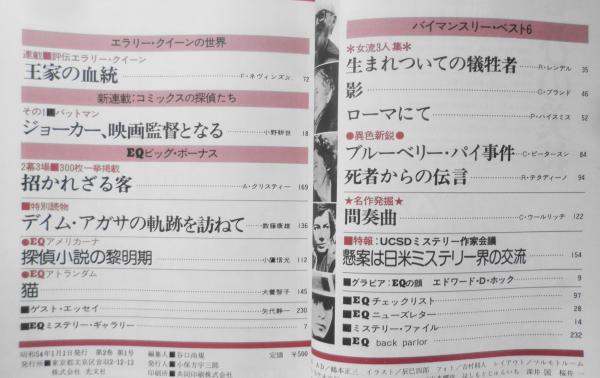 エラリー・クイーンの世界
連載■評伝エラリー・クイーン
王家の血統 F・ネヴィンズJr. 72
新連載:コミックスの探偵たち
その1■バットマン
ジョーカー、映画監督となる 小野耕世 18
EQビッグ・ボーナス
2幕3場■300枚一挙掲載
招かれざる客 A・クリスティー 169
■特別読物
デイム・アガサの軌跡を訪ねて 数藤康雄 136
●EQアメリカーナ
探偵小説の黎明期 小鷹信光 112
●EQアトランダム
猫 犬養智子 145
■ゲスト・エッセイ 矢代静一 230
■EQミステリー・ギャラリー 7
昭和54年1月1日発行 第2巻 第1号
発行所■東京都文京区音羽2-12-13
株式会社 光文社
編集人■谷口尚規
発行人■小保方宇三郎
印刷所■共同印刷株式会社
定価 ¥590
バイマンスリー・ベスト6
★女流3人集★
生まれついての犠牲者 R・レンデル 35
影 C・ブランド 46
ローマにて P・ハイスミス 52
●異色新鋭●
ブルーベリー・パイ事件 C・ピータースン 84
死者からの伝言 R・チタディーノ 94
★名作発掘★
間奏曲 C・ウールリッチ 122
■特報:UCSDミステリー作家会議
懸案は日米ミステリー界の交流 154
■グラビア:EQの顔 エドワード・D・ホック 9
■EQチェックリスト 97
■EQニューズレター 28
■ミステリー・ファイル 14
■EQ back parlor 232
AD/鶴本正三 イラスト/辰巳四郎 フォト/吉村則人 レイアウト/ツルモトルーム